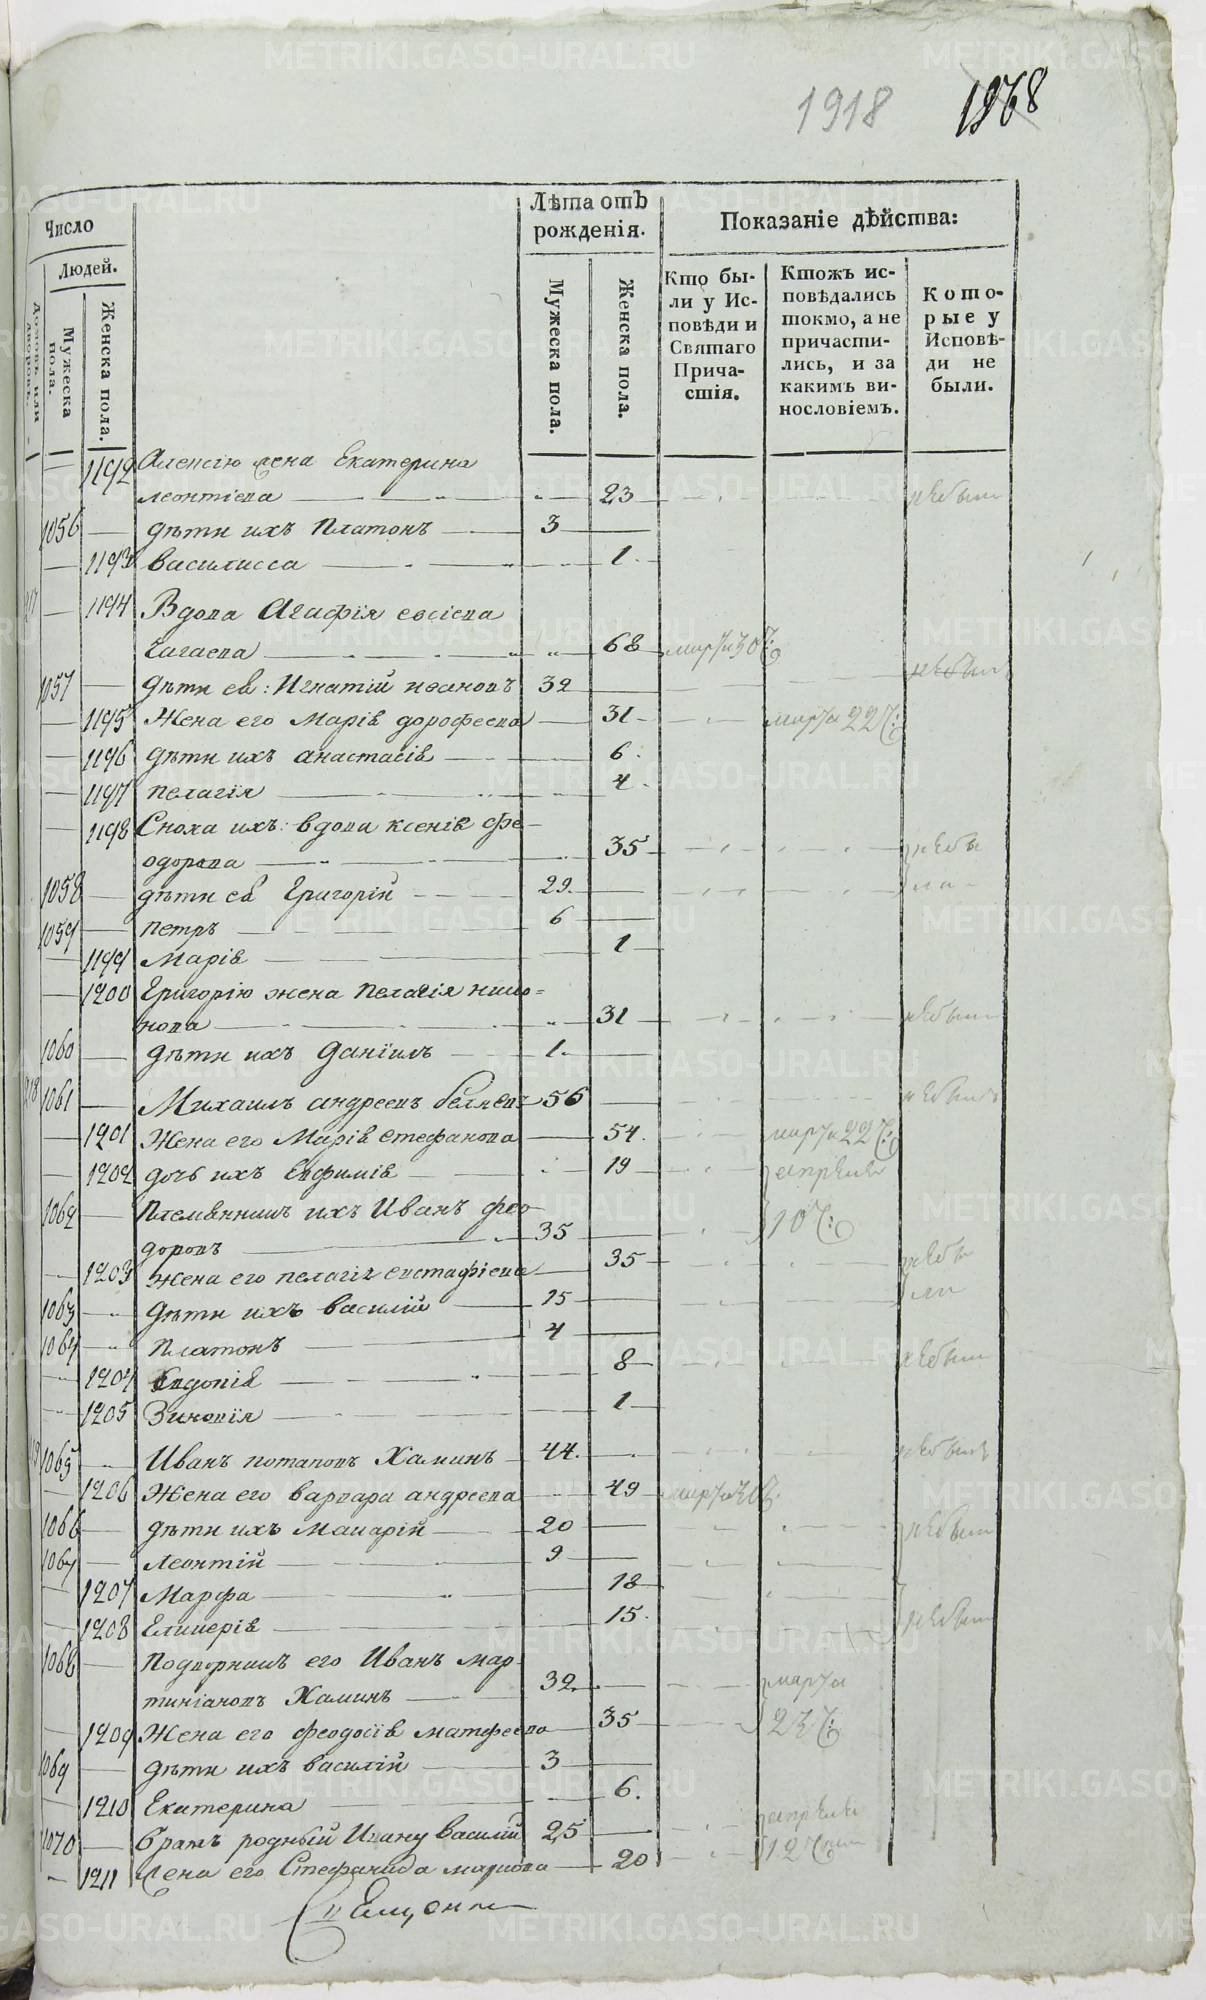 1918 1968
Число
Людей.
Домовъ или дворовъ.
Мужеска пола.
Женска пола.
Лѣта отъ рожденія.
Мужеска пола.
Женска пола.
Показаніе дѣйства:
Кто были у Исповѣди и Святаго Причастія.
Ктожъ исповѣдались токмо, а не причастились, и за какимъ винословіемъ.
Которые у Исповѣди не были.
1192 Алексѣю жена Екатерина
леонтіева 23 небыли
1056 дѣти ихъ Платонъ 3
1193 василисса 1
1194 Вдова Агафія евсіева
68 марта 30
1057 дѣти ея: Игнатій ивановъ 32 небыли
1195 Жена его Марія дорофеева 31 марта 22
1196 дѣти ихъ анастасія 6
1197 пелагія 4
1198 Сноха ихъ: вдова ксенія фе-
одорова 35 небы
1058 дѣти ея Григорій 29 ли
1059 петръ 6
1199 Марія 1
1200 Григорію жена Пелагія нико=
нова 31 небыли
1060 дѣти ихъ Даніилъ 1
218 1061 Михаилъ андреевъ беляевъ 56 небылъ
1201 Жена его Марія стефанова 54 марта 22
1202 дочь ихъ Евфимія 19 апреля
1062 Племянникъ ихъ Иванъ фео-
доровъ 35 10
1203 жена его пелагія евстафіева 35 небы
1063 дѣти ихъ василій 15 ли
1064 Платонъ 4
1204 Евдокія 8 небыли
1205 Зиновія 1
1065 Иванъ потаповъ Хаминъ 44 небылъ
1206 Жена его варвара андреева 49 марта 30
1066 дѣти ихъ Макарій 20 небыли
1067 Леонтій 9
1207 Марфа 18
1208 Гликерія 15 небыли
1068 Подворникъ его Иванъ мар-
тиніановъ Хаминъ 32 марта
1209 Жена его феодосія матфеева 35 23
1069 дѣти ихъ василій 3
1210 Екатерина 6
1070 братъ родный Ивану василій 25 апреля
1211 жена его Стефанида маркова 20 12